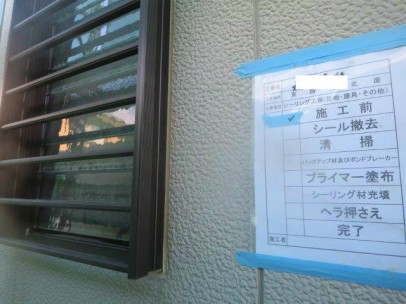 工事名
北面
シーリング工事(目地・建具・その他)
施工前
シール撤去
清掃
バックアップ材及びボンドブレーカー
プライマー塗布
シーリング材充填
ヘラ押さえ
完了
施工者